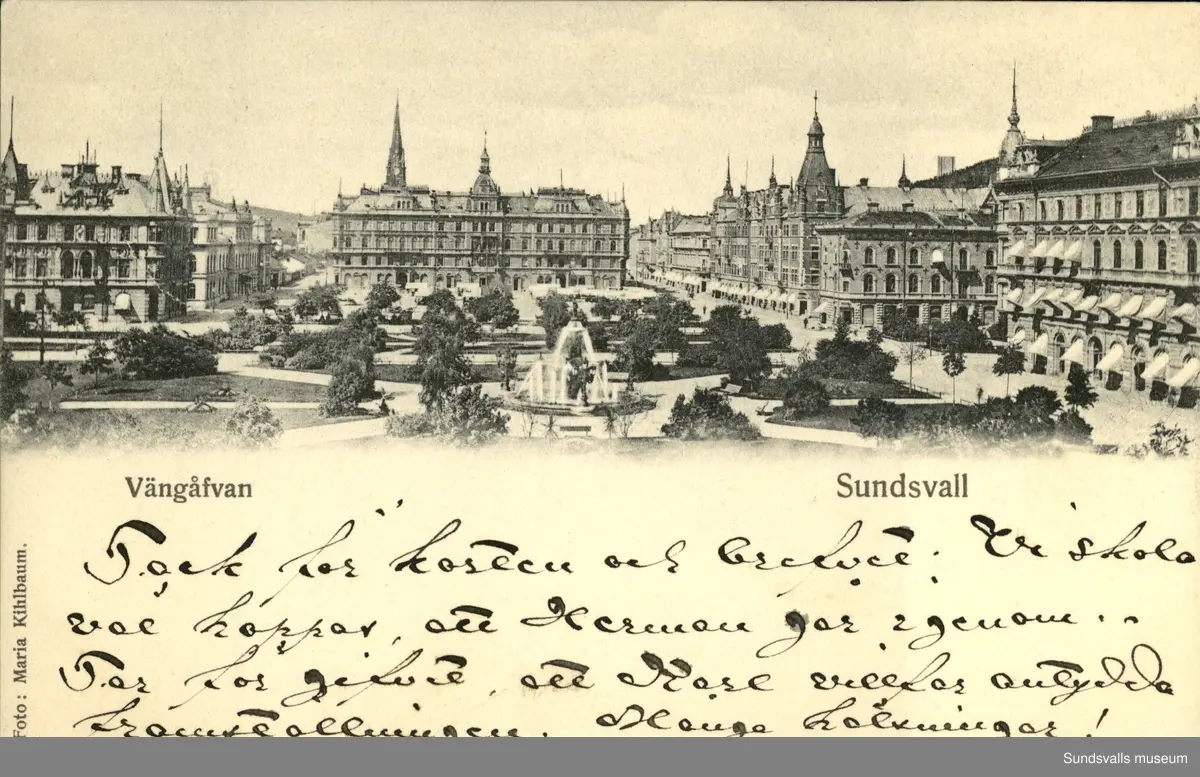 Vängåfvan
Sundsvall
Foto: Maria Kihlbaum.
Tack för korten och brefvet. Vi skola
väl hoppas, att Herman går igenom..
Tar för gifvet, att Karl villfar antydda
framställningen. Många hälsningar!
Sundsvalls museum